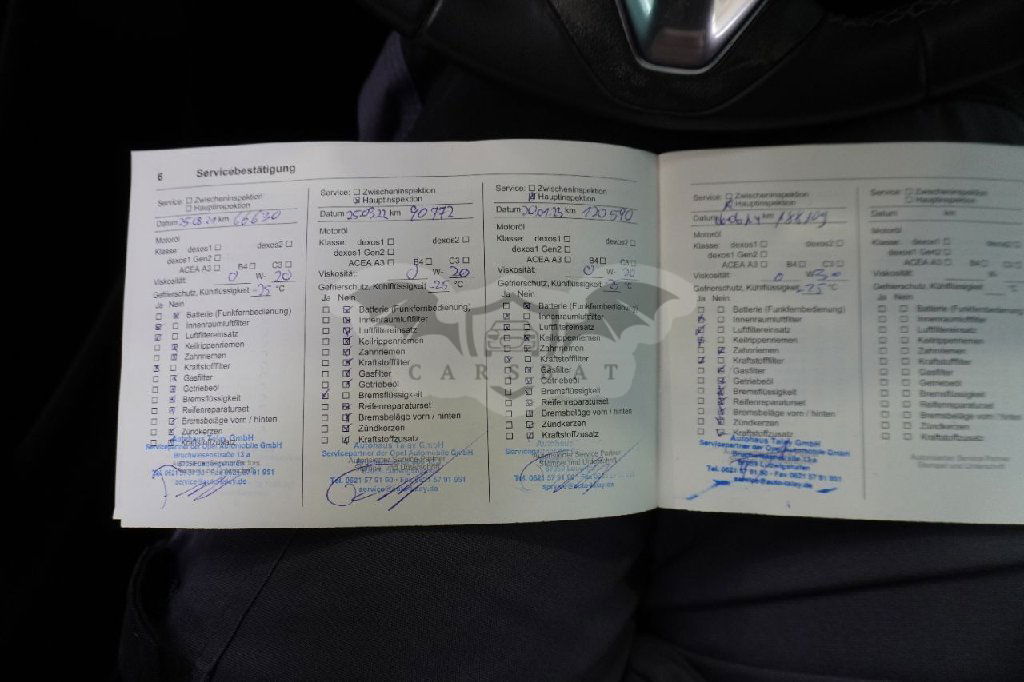 6 Servicebestätigung
Service: Zwischeninspektion
Hauptinspektion
Datum 25.08.21 km 66630
Motoröl
Klasse: dexos1 dexos2
dexos1 Gen2
ACEA A3 B4 C3
Viskosität: 0 W- 20
Gefrierschutz, Kühlflüssigkeit -25 °C
Ja Nein
Batterie (Funkfernbedienung)
Innenraumluftfilter
Luftfiltereinsatz
Keilrippenriemen
Zahnriemen
Kraftstofffilter
Gasfilter
Getriebeöl
Bremsflüssigkeit
Reifenreparaturset
Bremsbeläge vorn / hinten
Zündkerzen
Autohaus Talay GmbH
Servicepartner der Opel Automobile GmbH
Bruchwiesenstraße
service@auto-talay.de
Service: Zwischeninspektion
Hauptinspektion
Datum 25.03.22 km 90772
Motoröl
Klasse: dexos1 dexos2
dexos1 Gen2
ACEA A3 B4 C3
Viskosität: 0 W- 20
Gefrierschutz, Kühlflüssigkeit -25 °C
Ja Nein
Batterie (Funkfernbedienung)
Innenraumluftfilter
Luftfiltereinsatz
Keilrippenriemen
Zahnriemen
Kraftstofffilter
Gasfilter
Getriebeöl
Bremsflüssigkeit
Reifenreparaturset
Bremsbeläge vorn / hinten
Zündkerzen
Kraftstoffzusatz
Autohaus Talay GmbH
Servicepartner der Opel Automobile GmbH
Tel. 0621 57 91 60 - Fax 0621 57 91 051
service@auto-talay.de
Service: Zwischeninspektion
Hauptinspektion
Datum 20.01.23 km 120590
Motoröl
Klasse: dexos1 dexos2
dexos1 Gen2
ACEA A3 B4 C3
Viskosität: 0 W- 20
Gefrierschutz, Kühlflüssigkeit °C
Ja Nein
Batterie (Funkfernbedienung)
Innenraumluftfilter
Luftfiltereinsatz
Keilrippenriemen
Zahnriemen
Kraftstofffilter
Gasfilter
Getriebeöl
Bremsflüssigkeit
Reifenreparaturset
Bremsbeläge vorn / hinten
Zündkerzen
Kraftstoffzusatz
Autohaus
Autorisierter Service Partner
Stempel und Unterschrift
service@auto-talay.de
CARSBAT
Service: Zwischeninspektion
Hauptinspektion
Datum km
Motoröl
Klasse: dexos1 dexos2
dexos1 Gen2
ACEA A3 B4 C3
Viskosität: 0 W-
Gefrierschutz, Kühlflüssigkeit -25 °C
Ja Nein
Batterie (Funkfernbedienung)
Innenraumluftfilter
Luftfiltereinsatz
Keilrippenriemen
Zahnriemen
Kraftstofffilter
Gasfilter
Getriebeöl
Bremsflüssigkeit
Reifenreparaturset
Bremsbeläge vorn / hinten
Zündkerzen
Kraftstoffzusatz
Autohaus Talay GmbH
Servicepartner der Opel Automobile GmbH
Ludwigshafen
Tel. 0621 57 91 60 - Fax 0621 57 91 051
service@auto-talay.de
Service: Zwischeninspektion
Hauptinspektion
Datum km
Motoröl
Klasse: dexos1 dexos2
dexos1 Gen2
ACEA A3 B4 C3
Viskosität:
Gefrierschutz, Kühlflüssigkeit
Ja Nein
Batterie (Funkfernbedienung
Innenraumluftfilter
Luftfiltereinsatz
Keilrippenriemen
Zahnriemen
Kraftstofffilter
Gasfilter
Getriebeöl
Bremsflüssigkeit
Reifenreparaturset
Bremsbeläge vorn / hinten
Zündkerzen
Kraftstoffzusatz
Autorisierter Service Partner
Stempel und Unterschrift